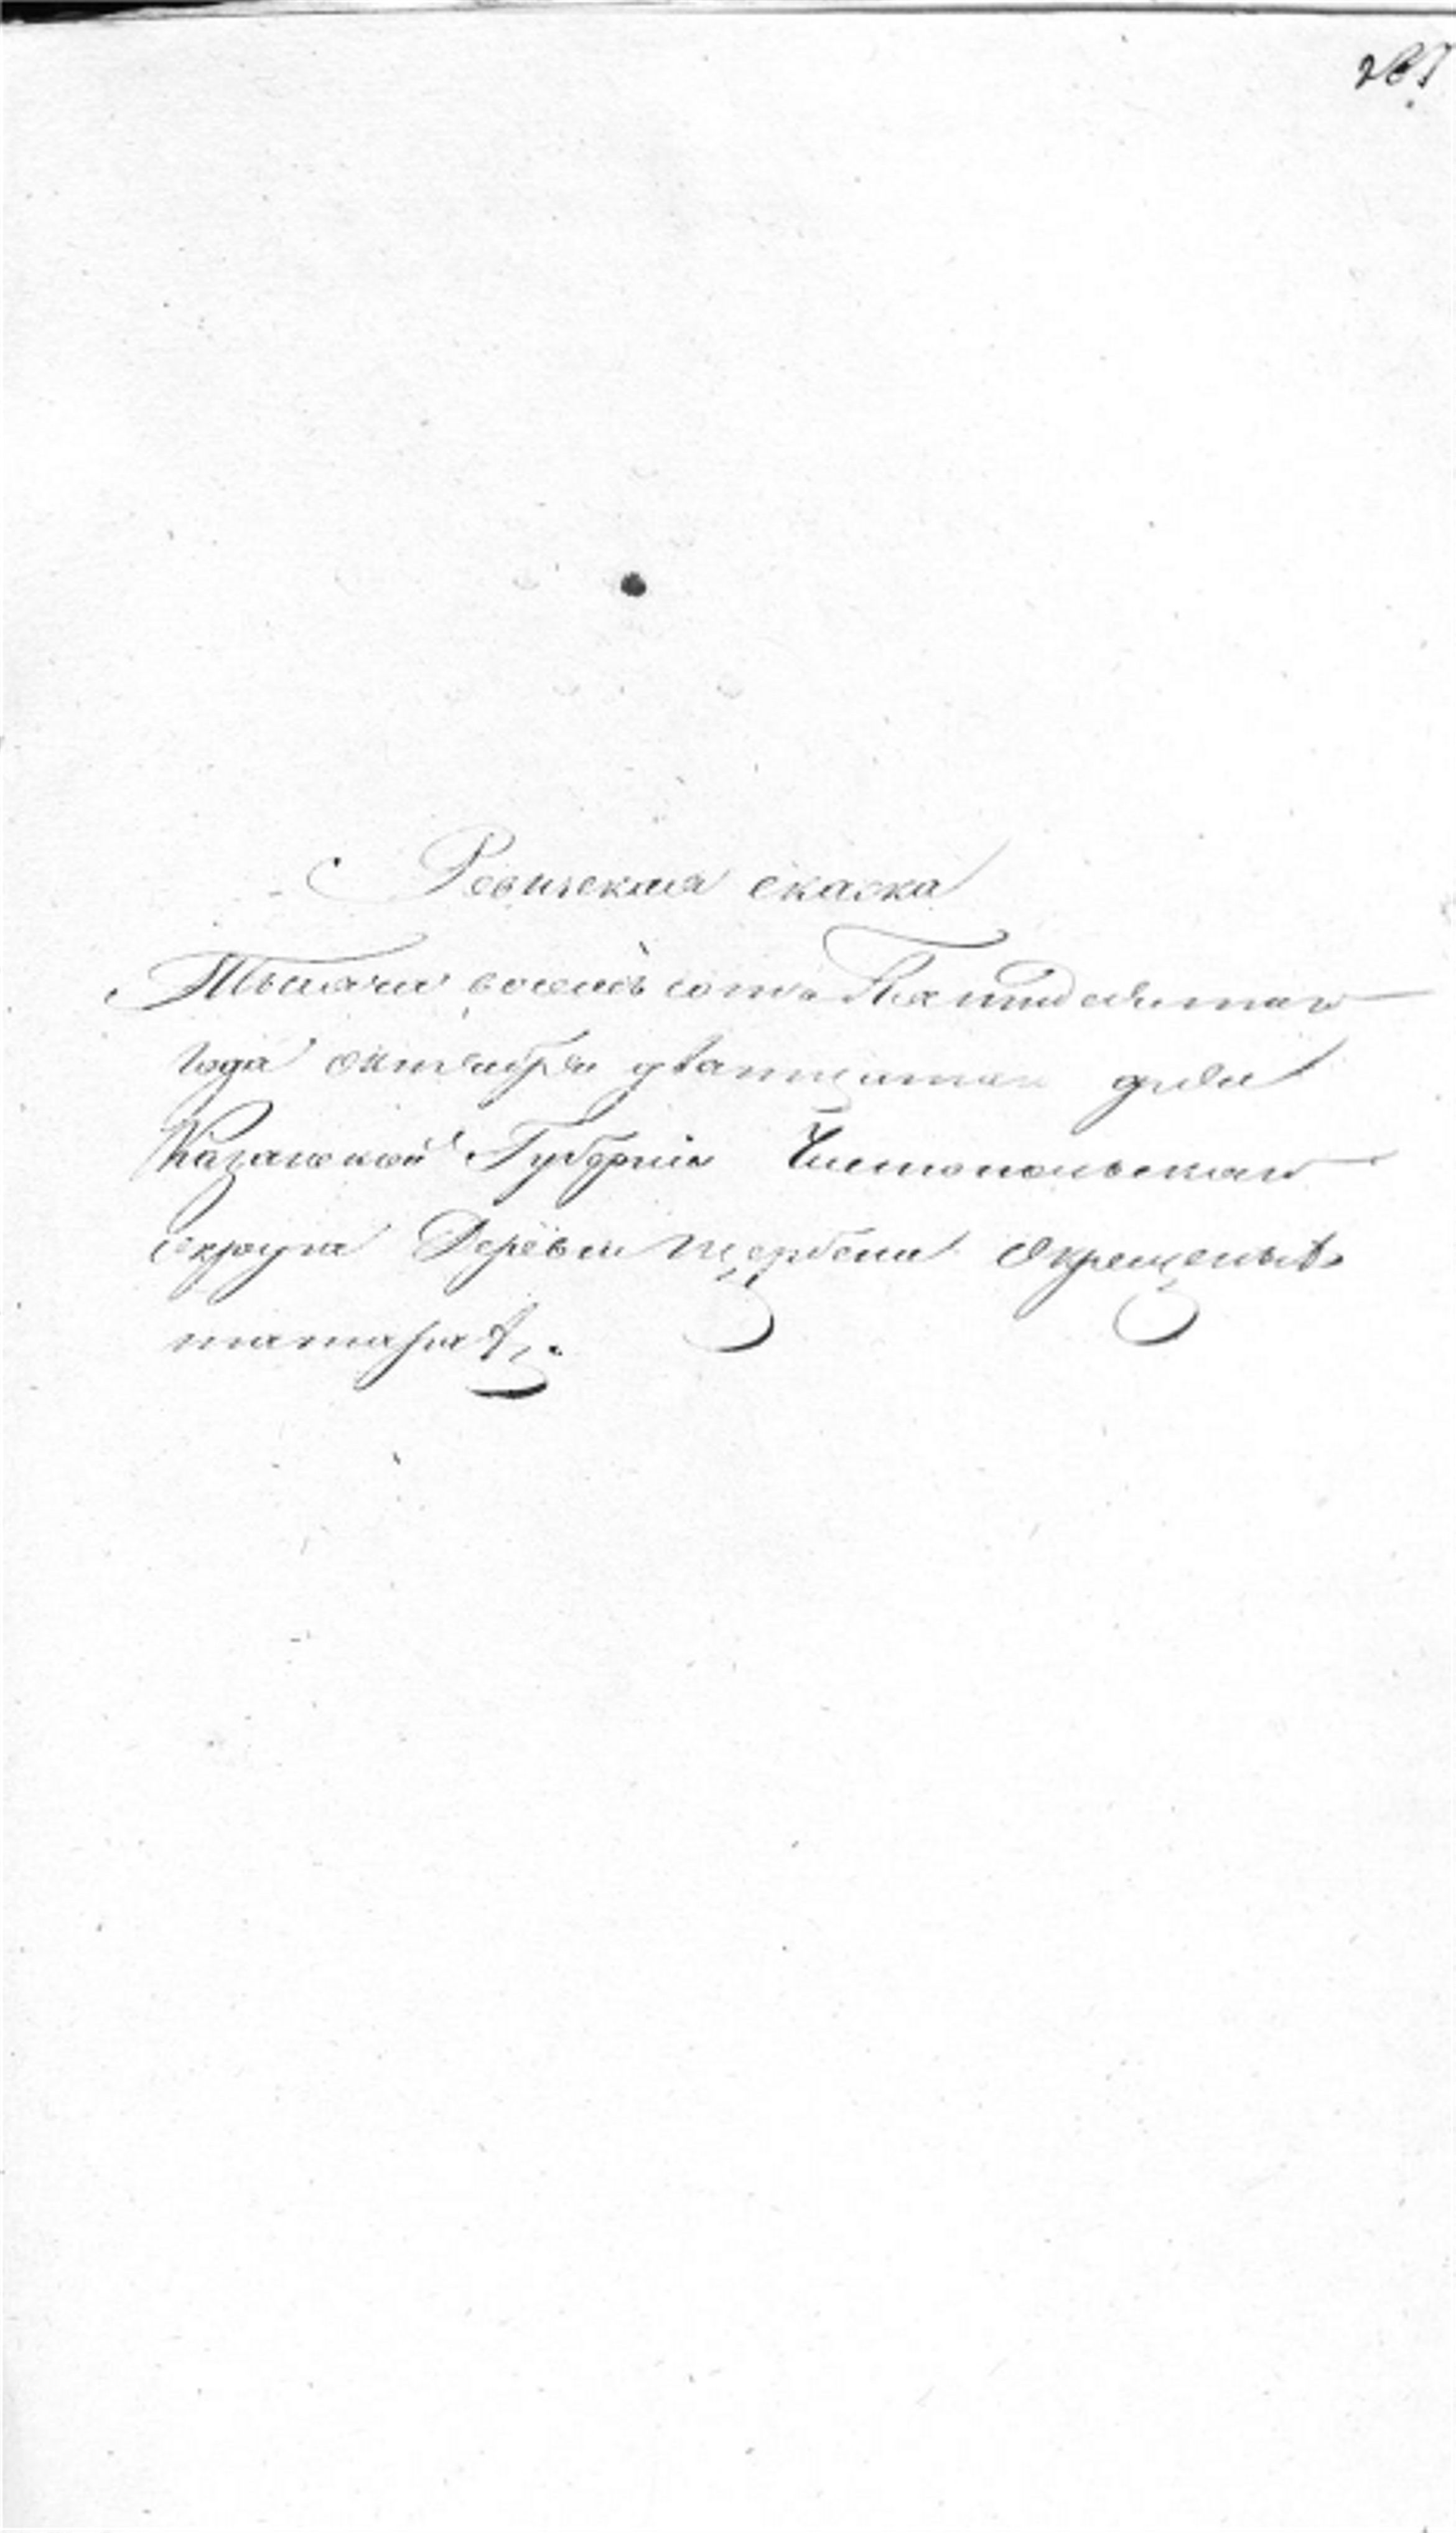 Ревизская сказка
Тысяча восемь сотъ Пятидесятаго
года октября дватцатаго дня
Казанской Губерніи Чистопольскаго
округа Деревни Щербени окрещеныхъ
татаръ